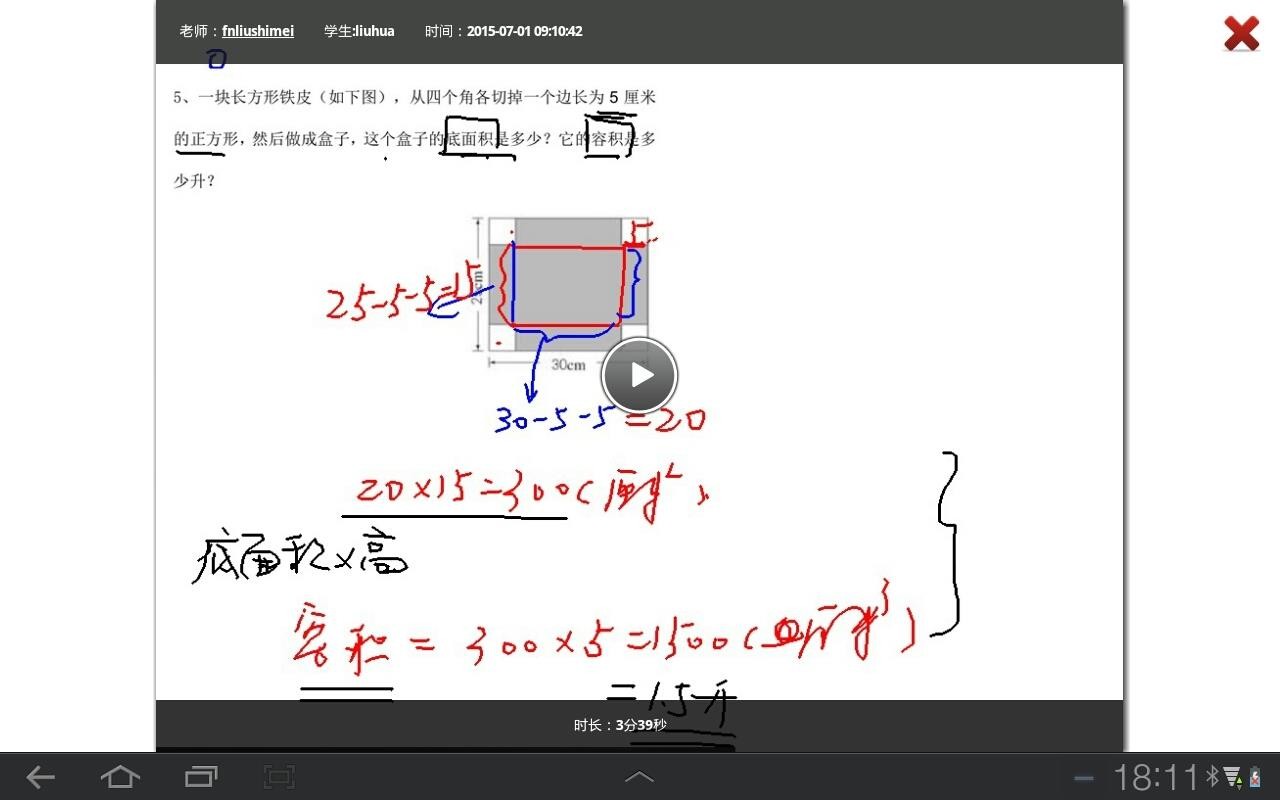 老师：fnliushimei 学生:liuhua 时间：2015-07-01 09:10:42
5、一块长方形铁皮（如下图），从四个角各切掉一个边长为 5 厘米
的正方形，然后做成盒子，这个盒子的底面积是多少？它的容积是多
少升？
5
25-5-5=15
30cm
30-5-5=20
20×15=300(厘米²)
底面积×高
容积=300×5=1500(厘米³)
=1.5升
时长：3分39秒
18:11